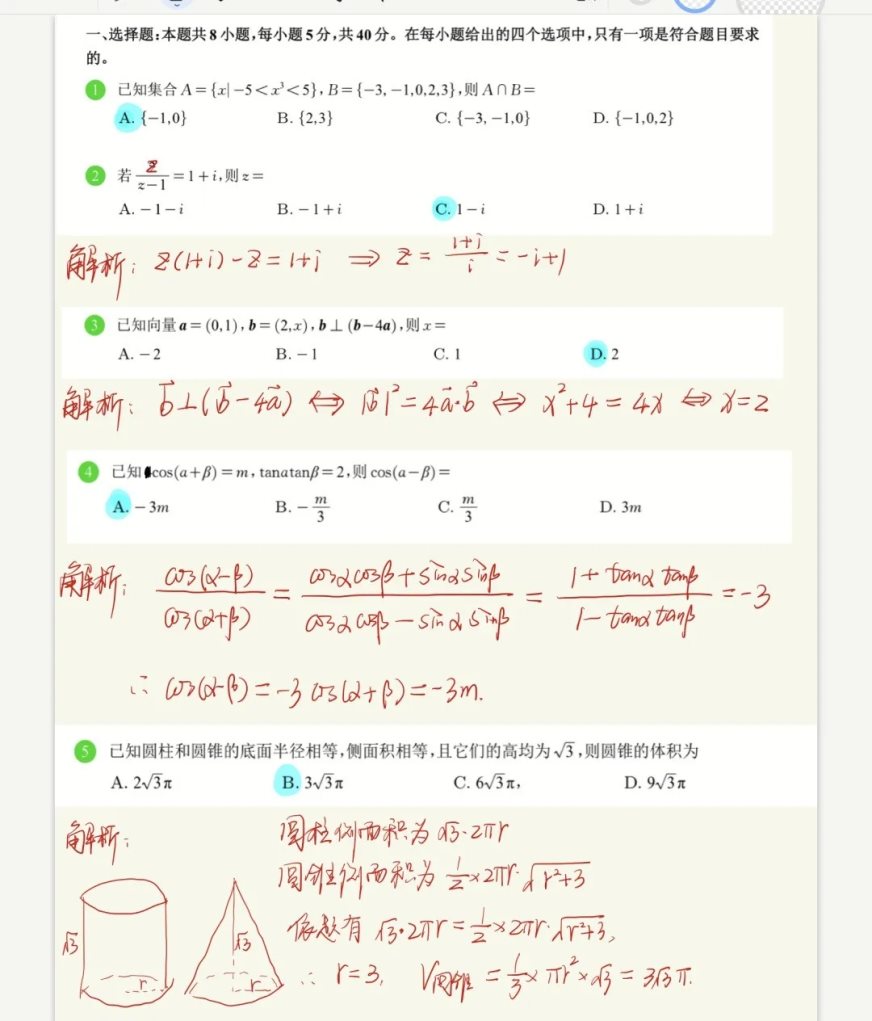 一、选择题:本题共8小题,每小题5分,共40分。在每小题给出的四个选项中,只有一项是符合题目要求
的。
1 已知集合A={x|−5<x³<5},B={−3,−1,0,2,3},则A∩B=
A. {−1,0} B. {2,3} C. {−3,−1,0} D. {−1,0,2}
2 若z/(z−1)=1+i,则z=
A. −1−i B. −1+i C. 1−i D. 1+i
解析: z(1+i)−z=1+i ⇒ z=(1+i)/i=−i+1
3 已知向量a=(0,1),b=(2,x),b⊥(b−4a),则x=
A. −2 B. −1 C. 1 D. 2
解析: b⃗⊥(b⃗−4a⃗) ⇔ |b⃗|²=4a⃗·b⃗ ⇔ x²+4=4x ⇔ x=2
4 已知cos(α+β)=m,tanαtanβ=2,则cos(α−β)=
A. −3m B. −m/3 C. m/3 D. 3m
解析: cos(α−β)/cos(α+β) = (cosαcosβ+sinαsinβ)/(cosαcosβ−sinαsinβ) = (1+tanαtanβ)/(1−tanαtanβ) =−3
∴ cos(α−β)=−3cos(α+β)=−3m.
5 已知圆柱和圆锥的底面半径相等,侧面积相等,且它们的高均为√3,则圆锥的体积为
A. 2√3π B. 3√3π C. 6√3π, D. 9√3π
解析:
圆柱侧面积为√3·2πr
圆锥侧面积为½×2πr·√(r²+3)
依题有 √3·2πr=½×2πr·√(r²+3),
∴ r=3, V圆锥=⅓×πr²×√3=3√3π.
√3 r
√3 r